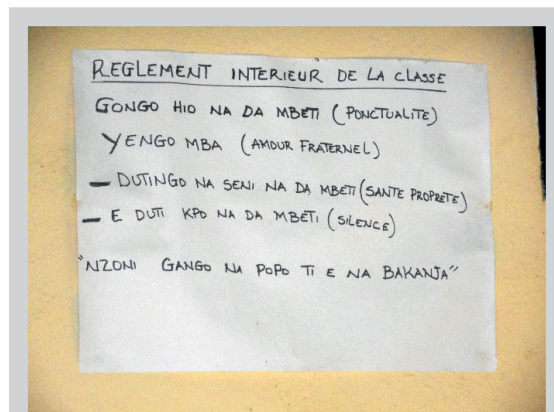 REGLEMENT INTERIEUR DE LA CLASSE
GONGO HIO NA DA MBETI (PONCTUALITE)
YENGO MBA (AMOUR FRATERNEL)
- DUTINGO NA SENI NA DA MBETI (SANTE PROPRETE)
- E DUTI KPO NA DA MBETI (SILENCE)
"NZONI GANGO NA POPO TI E NA BAKANJA"